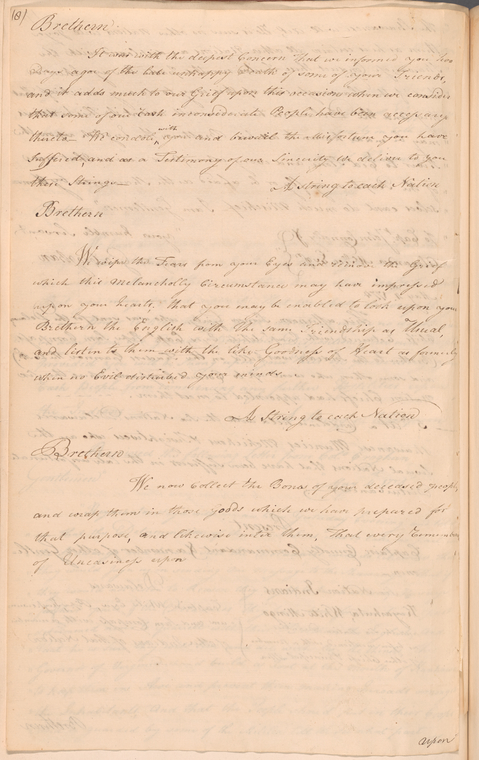 (8)
Brethern
It was with the deepest Concern that we informed you two
Days ago of the late unhappy Death of some of your Friends,
and it adds much to our Grief upon this occasion when we consider
that some of our rash inconsiderate People have been accessary
thereto We condole with you and bewail the Misfortune you have
Suffered, and as a Testimony of our Sincerity we deliver to you
these Strings —
A string to each Nation
Brethern
We wipe the Tears from your Eyes and remove the Grief
which this Melancholly Circumstance may have impressed
upon your hearts, that you may be enabled to look upon your
Brethern the English with the same Friendship as Usual,
and listen to them with the like Goodness of Heart as formerly
when no Evil disturbed your minds —
A String to each Nation
Brethern
We now Collect the Bones of your deceased people,
and wrap them in those goods which we have prepared for
that purpose, and likewise inter them, That every Remembrance
of Uneasiness upon
upon